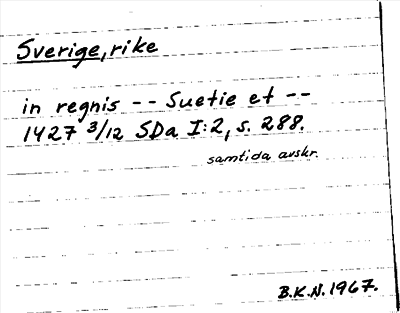 Sverige, rike
in regnis -- Suetie et --
1427 3/12 SDa I:2, s. 288.
samtida avskr.
B.K.N. 1967.